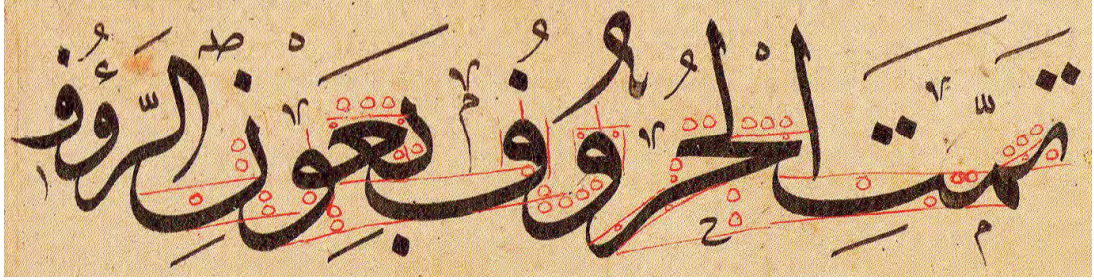 تَمَّتِ الْحُرُوفُ بِعَوْنِ الرَّؤُفِ